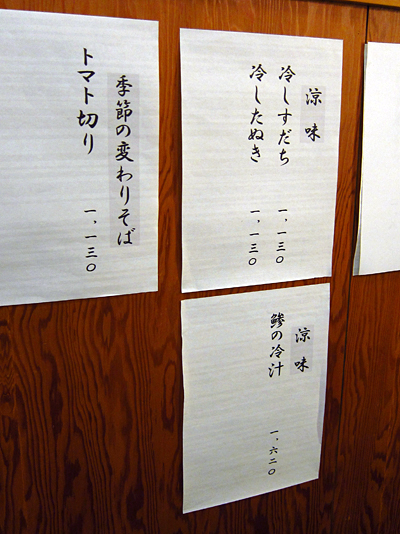 涼味
冷しすだち 一、一三〇
冷したぬき 一、一三〇
涼味
鯵の冷汁 一、六二〇
季節の変わりそば
トマト切り 一、一三〇